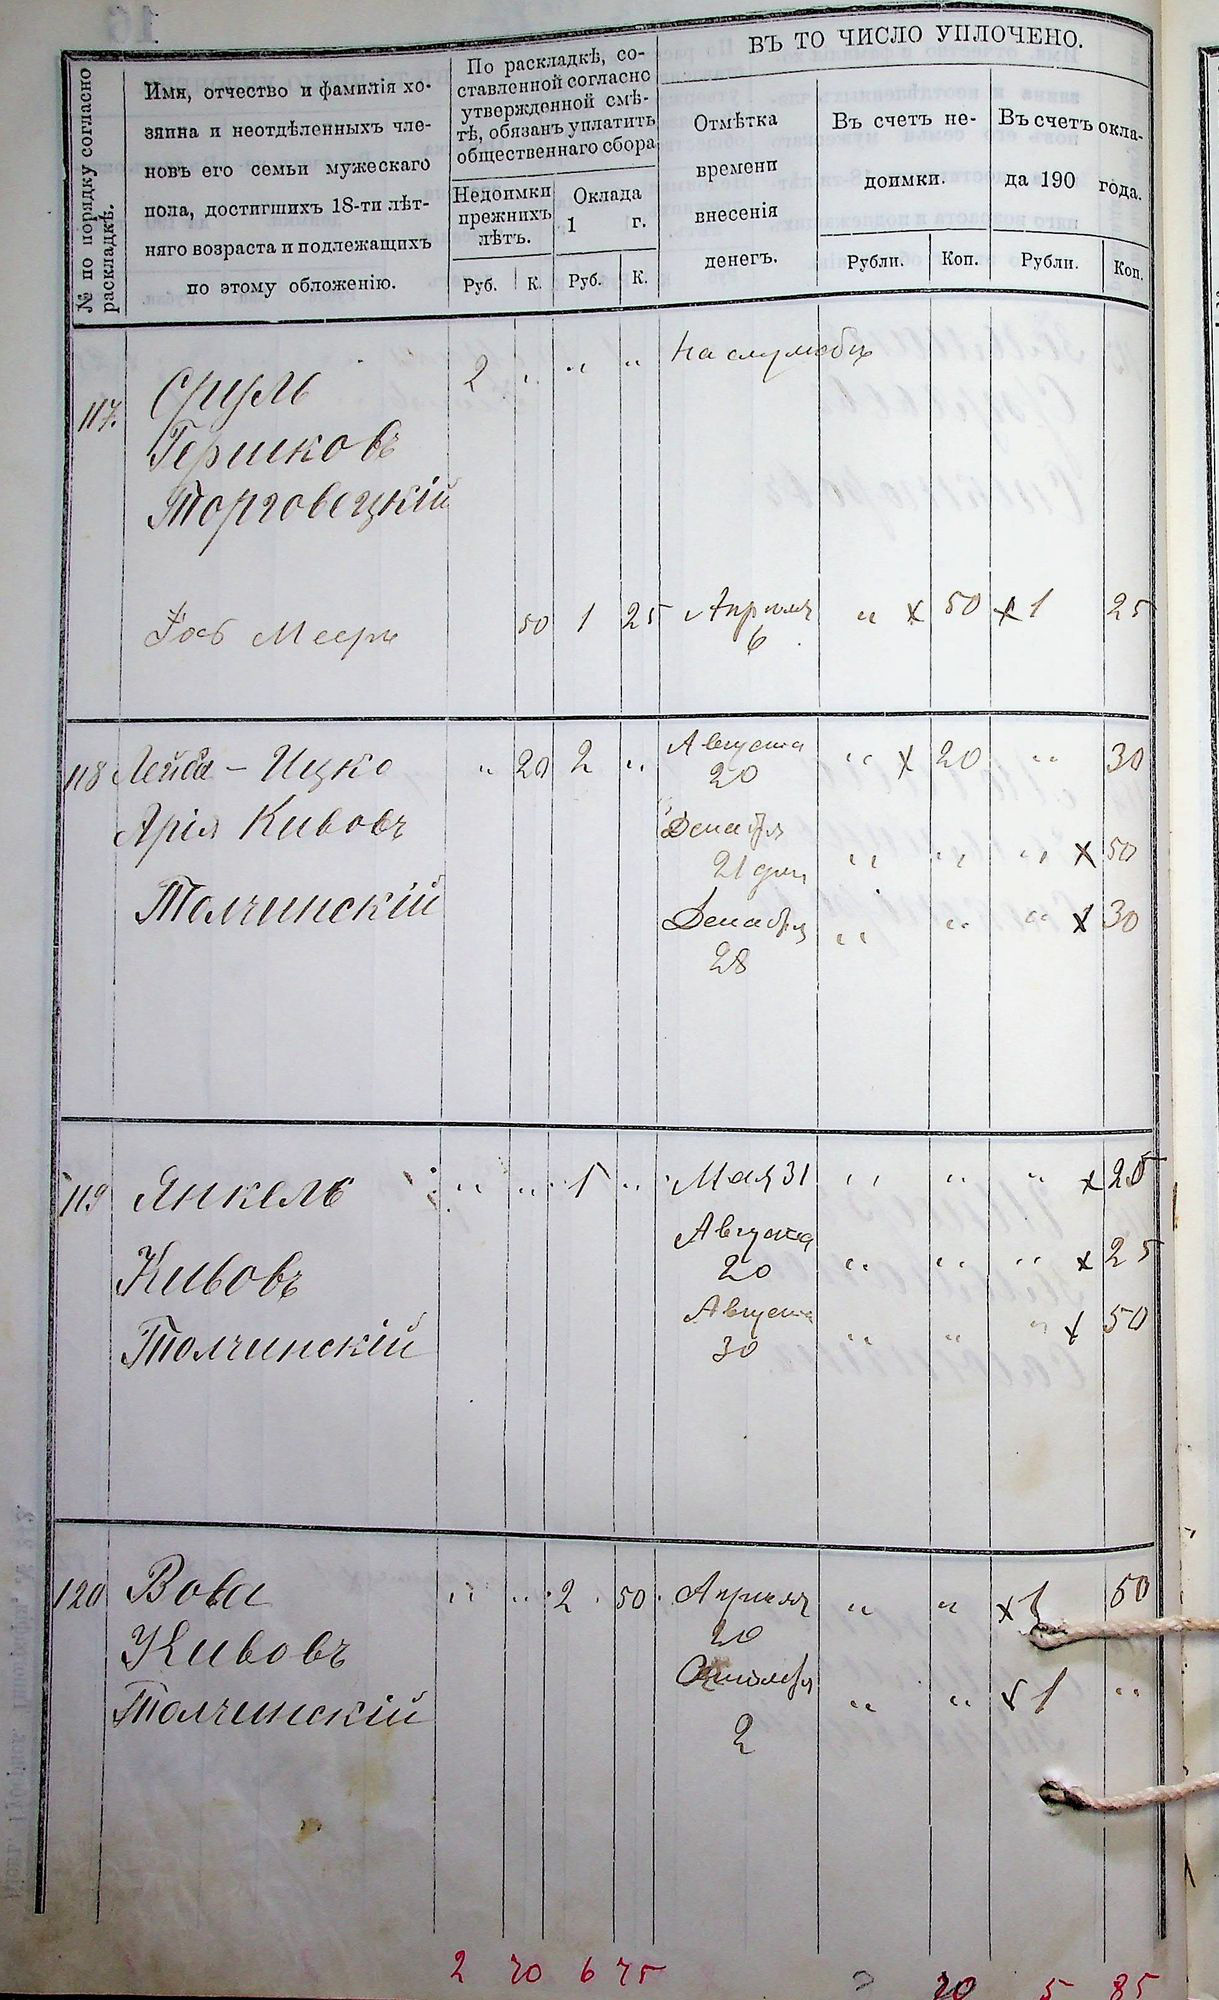 ВЪ ТО ЧИСЛО УПЛОЧЕНО.
№ по порядку согласно
раскладкѣ.
Имя, отчество и фамилія хо-
зяина и неотдѣленныхъ чле-
новъ его семьи мужескаго
пола, достигшихъ 18-ти лѣт-
няго возраста и подлежащихъ
по этому обложенію.
По раскладкѣ, со-
ставленной согласно
утвержденной смѣ-
тѣ, обязанъ уплатить
общественнаго сбора
Недоимки
прежнихъ
лѣтъ.
Оклада
1 г.
Руб. К. Руб. К.
Отмѣтка
времени
внесенія
денегъ.
Въ счетъ не-
доимки.
Въ счетъ окла-
да 190 года.
Рубли. Коп. Рубли. Коп.
117. Сруль 2 " " " На службѣ
Гершковъ
Торговецкій
Мееръ 50 1 25 Апрѣля " x 50 x 1 25
6
118 Лейба - Ицко " 20 2 " Августа " x 20 " 30
20
Арія Кивовъ Декабря
21 дня " " " x 50
Толчинскій Декабря " " " x 30
28
119 Янкель " " 1 " Мая 31 " " " x 25
Кивовъ Августа
20 " " " x 25
Толчинскій Августа
30 " " " x 50
120 Вова " " 2 50 Апрѣля " " x 1 50
20
Кивовъ
Толчинскій Октября " " x 1 "
2
2 70 6 75 70 5 85